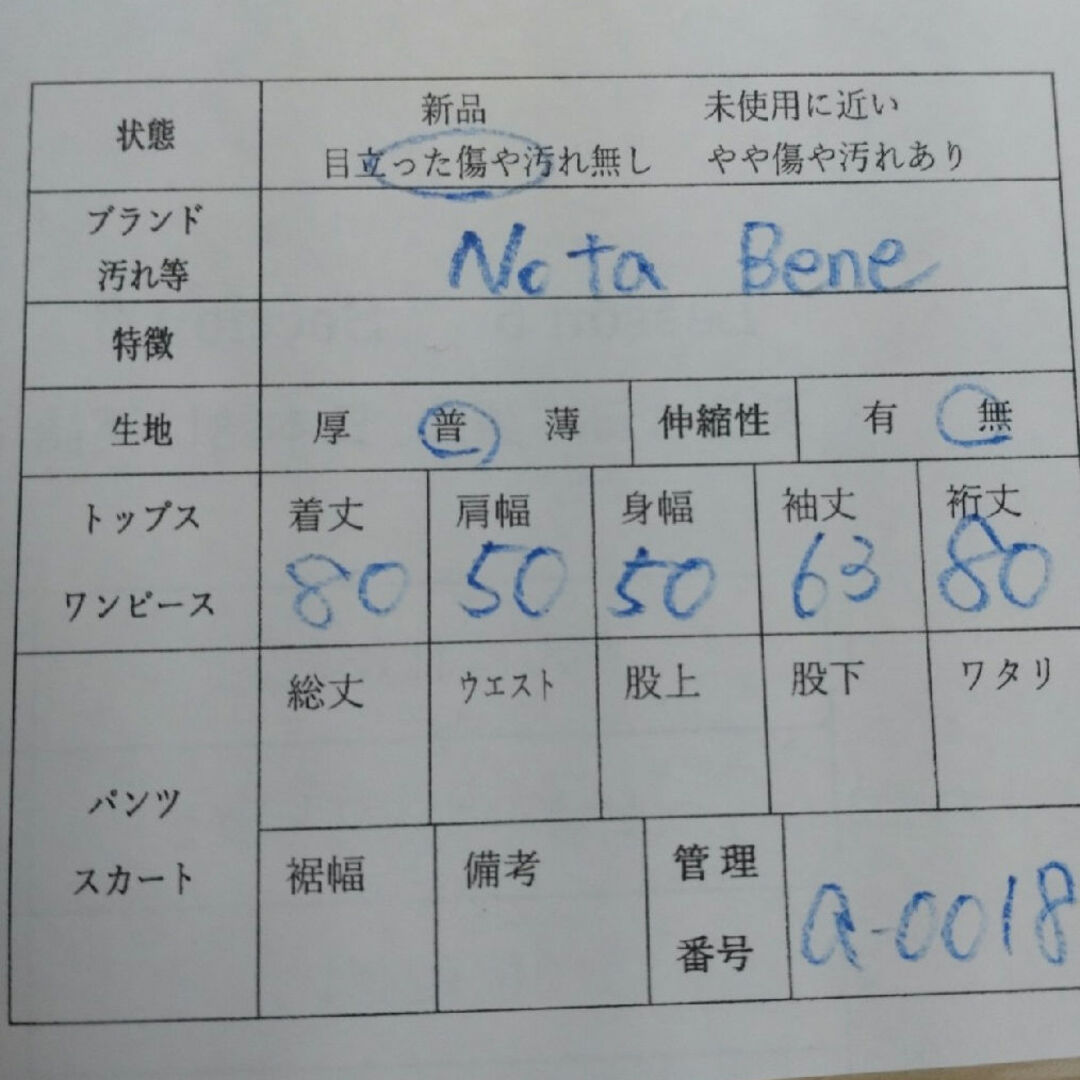 状態 新品 未使用に近い
目立った傷や汚れ無し やや傷や汚れあり
ブランド
汚れ等
Nota Bene
特徴
生地 厚 普 薄 伸縮性 有 無
トップス
ワンピース
着丈 肩幅 身幅 袖丈 裄丈
80 50 50 63 80
パンツ
スカート
総丈 ウエスト 股上 股下 ワタリ
裾幅 備考 管理
番号
a-0018